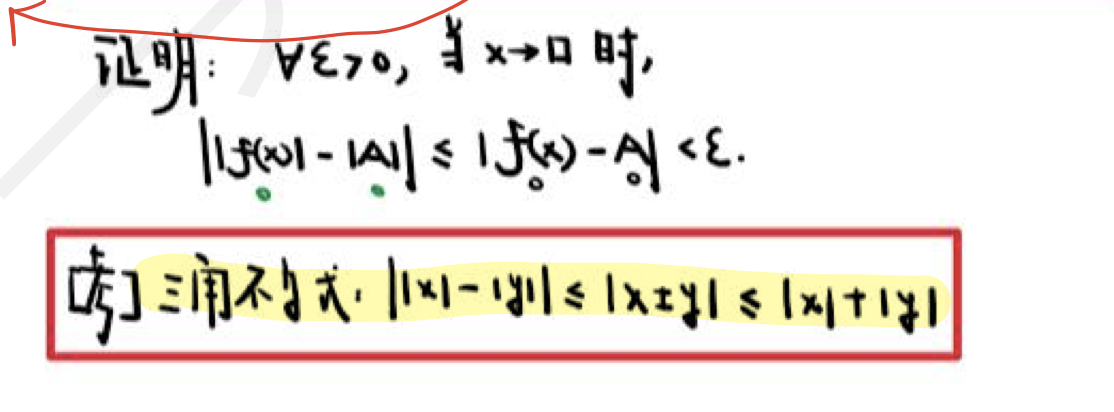 证明: ∀ε>0, 当 x→□ 时,
||f(x)|-|A|| ≤ |f(x)-A| <ε.
[考] 三角不等式: ||x|-|y|| ≤ |x±y| ≤ |x|+|y|